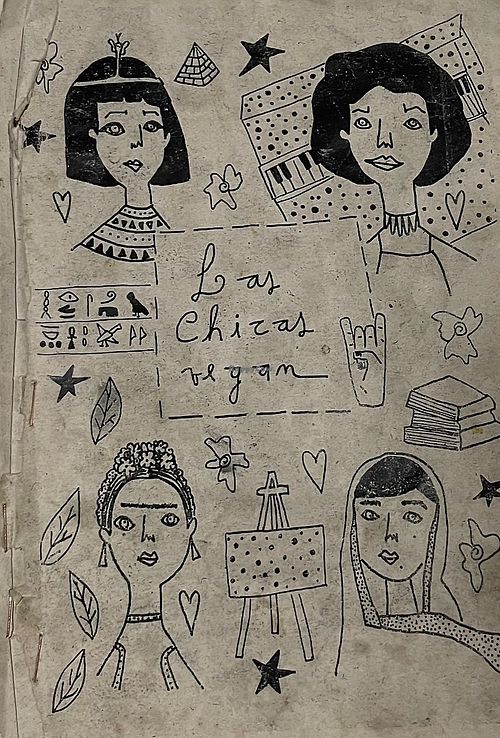 Las
Chicas
vegan